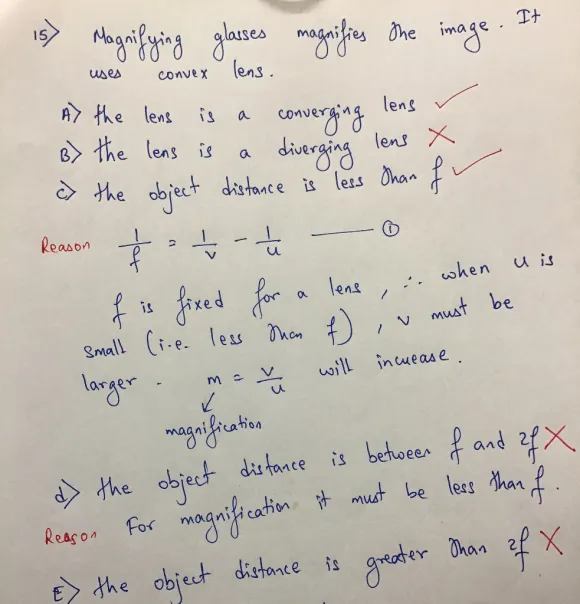 15> Magnifying glasses magnifies the image. It
uses convex lens.
A> the lens is a converging lens ✓
B> the lens is a diverging lens ✗
c> the object distance is less than f ✓
Reason 1/f = 1/v - 1/u ——— ①
f is fixed for a lens, ∴ when u is
small (i.e. less than f), v must be
larger. m = v/u will increase.
magnification
d> the object distance is between f and 2f ✗
Reason For magnification it must be less than f.
E> the object distance is greater than 2f ✗